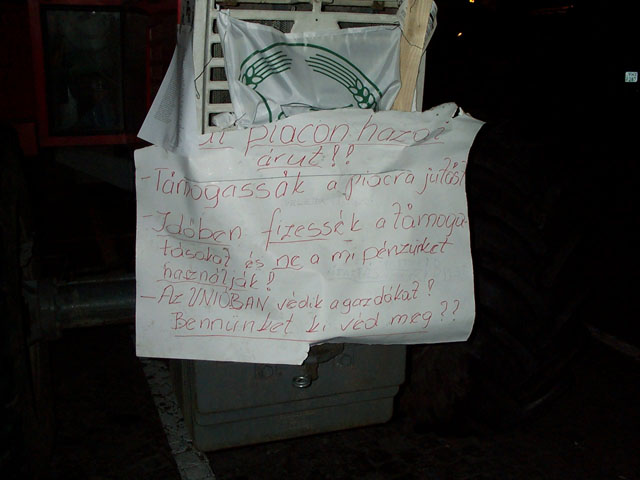 piacon hazai
árut!?
- Támogassák a piacra jutást
- Időben fizessék a támoga-
tásokat és ne a mi pénzünket
használják!
- Az UNIÓBAN védik a gazdákat!
Bennünket ki véd meg??